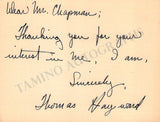 Dear Mr. Chapman;
Thanking you for your
interest in me, I am,
Sincerely,
Thomas Hayward
TAMINO AUTOGRAPHS